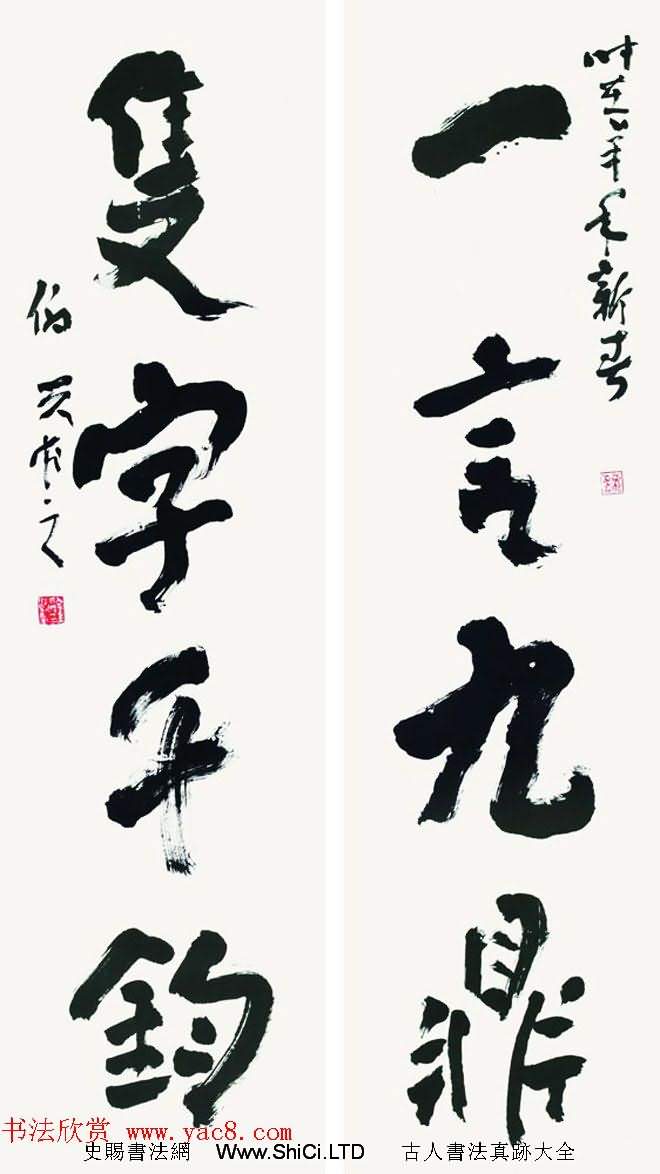 新春
一言九鼎
隻字千鈞
书法欣赏 www.yac8.com
史賜書法網 Www.ShiCi.LTD 古人書法真跡大全